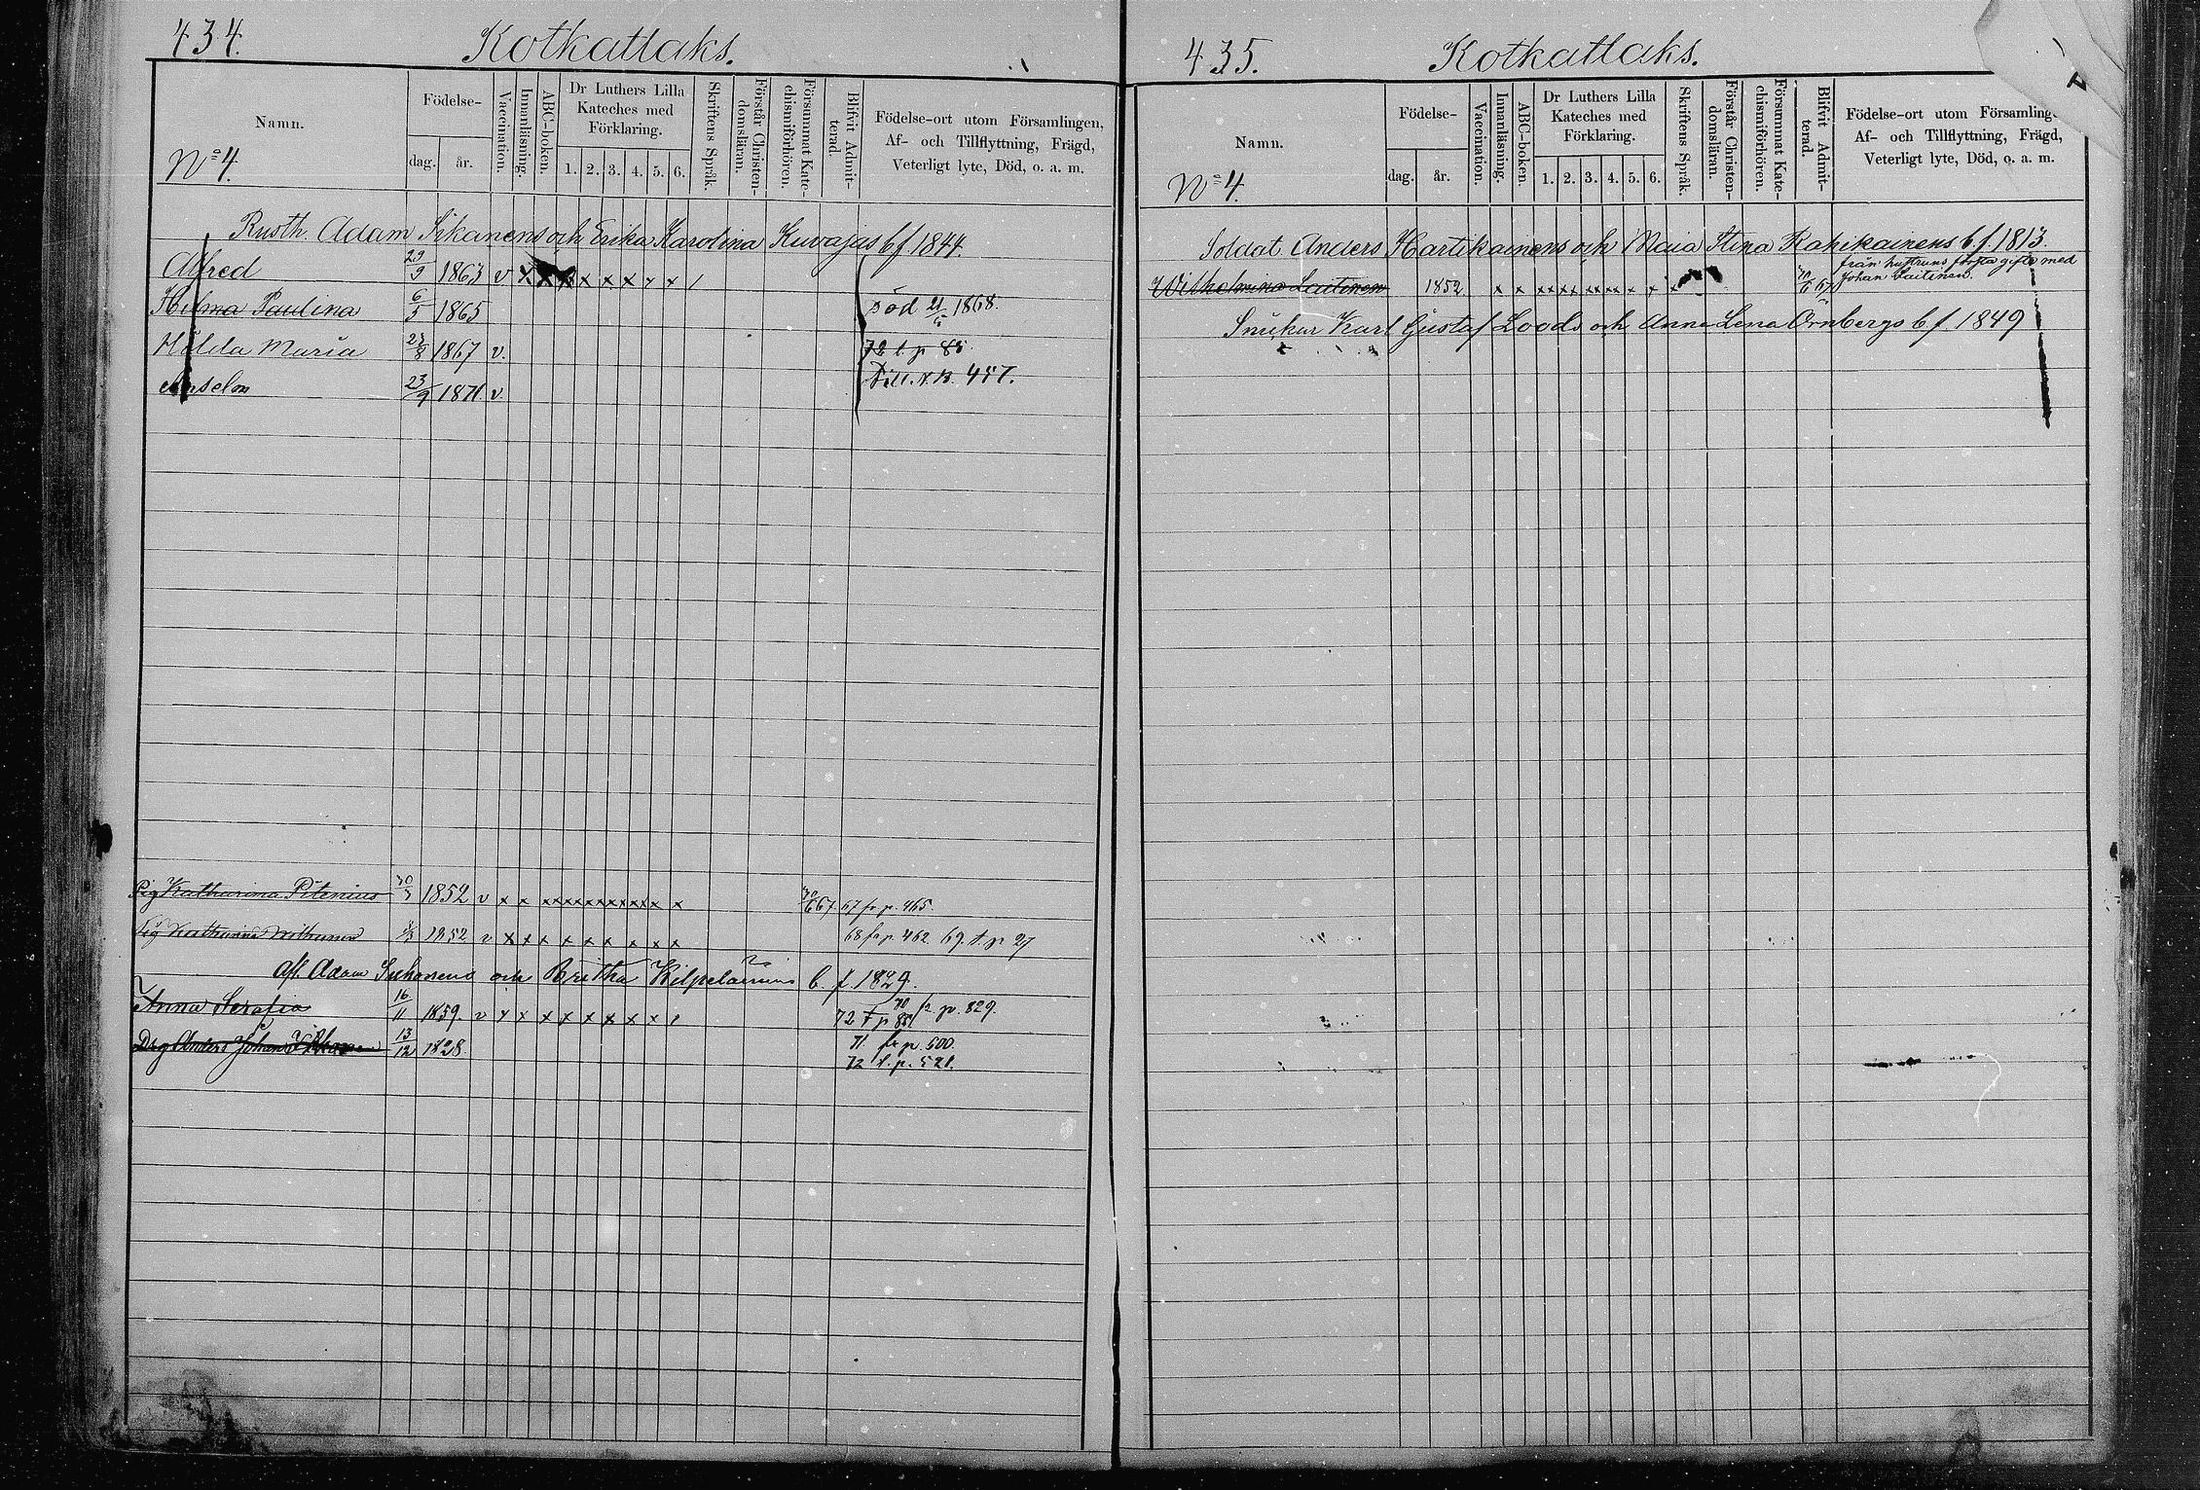 434.
Kotkatlaks.
Namn.
Födelse-
dag.
år.
Vaccination.
Innanläsning.
ABC-boken.
Dr Luthers Lilla
Kateches med
Förklaring.
1. 2. 3. 4. 5. 6.
Skriftens Språk.
Förstår Christen-
domsläran.
Försummat Kate-
chismiförhören.
Blifvit Admit-
terad.
Födelse-ort utom Församlingen,
Af- och Tillflyttning, Frägd,
Veterligt lyte, Död, o. a. m.
No 4.
Rusth. Adam Sikanens och Erika Karolina Kuvajas b f. 1844.
Alfred 29/9 1863 v x x x x x x x x
Hilma Paulina 6/5 1865 Död 1868.
Hilda Maria 1867 v. 72 t. p 85
Anselm 23/9 1871 v. Till. N. B. 457.
Pig Katharina Pitenius 1852 v x x x x x x x x x x x x x 67 67 fr p. 465.
Pig 1852 v x x x x x x x x x 68 fr p 462. 69. t. p 27
Afl. Adam och Britha b. f. 1829.
Anna Serafia 16/11 1859. v x x x x x x x x 70 fr p. 829.
72 t p 851
Drg Anders Johan 13/12 1828. 71 fr p. 500.
72 t. p. 521.
435.
Kotkatlaks.
Namn.
Födelse-
dag.
år.
Vaccination.
Innanläsning.
ABC-boken.
Dr Luthers Lilla
Kateches med
Förklaring.
1. 2. 3. 4. 5. 6.
Skriftens Språk.
Förstår Christen-
domsläran.
Försummat Kate-
chismiförhören.
Blifvit Admit-
terad.
Födelse-ort utom Församling
Af- och Tillflyttning, Frägd,
Veterligt lyte, Död, o. a. m.
No 4.
Soldat Anders Hartikainens och Maia Stina b. f. 1813.
från hustruns första gifte med
Wilhelmina Laitinen 1852 x x x x x x x x x x x 67 Johan Laitinen.
Karl Gustaf Loods och Anna Lena Örnbergs b. f. 1849